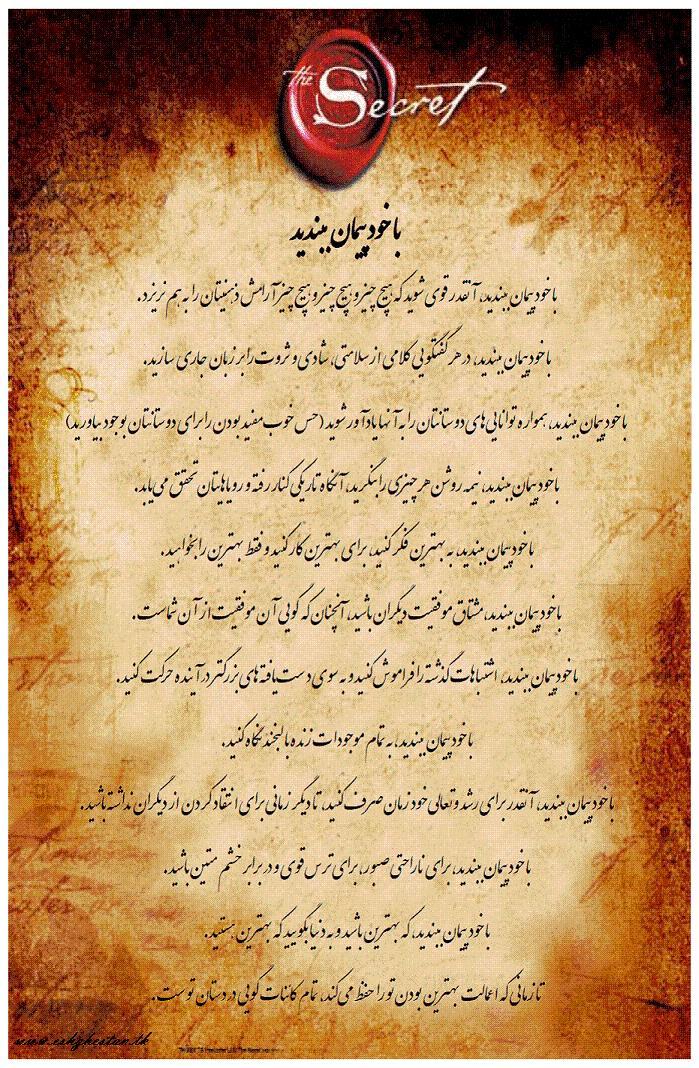 the Secret
با خود پیمان ببندید
با خود پیمان ببندید، آنقدر قوی شوید که هیچ چیز و هیچ چیز و هیچ چیز آرامش ذهنیتان را به هم نریزد.
با خود پیمان ببندید، در هر گفتگویی کلامی از سلامتی، شادی و ثروت را بر زبان جاری سازید.
با خود پیمان ببندید، همواره توانایی های دوستانتان را به آنها یادآور شوید (حس خوب مفید بودن را برای دوستانتان بوجود بیاورید)
با خود پیمان ببندید، نیمه روشن هر چیزی را بنگرید، آنگاه تاریکی کنار رفته و رویاهایتان تحقق می یابد.
با خود پیمان ببندید، به بهترین فکر کنید، برای بهترین کار کنید و فقط بهترین را بخواهید.
با خود پیمان ببندید، مشتاق موفقیت دیگران باشید، آنچنان که گویی آن موفقیت از آن شماست.
با خود پیمان ببندید، اشتباهات گذشته را فراموش کنید و به سوی دست یافته های بزرگتر در آینده حرکت کنید.
با خود پیمان ببندید، به تمام موجودات زنده با لبخند نگاه کنید.
با خود پیمان ببندید، آنقدر برای رشد و تعالی خود زمان صرف کنید، تا دیگر زمانی برای انتقاد کردن از دیگران نداشته باشید.
با خود پیمان ببندید، برای ناراحتی صبور، برای ترس قوی و در برابر خشم متین باشید.
با خود پیمان ببندید، که بهترین باشید و به دنیا بگویید که بهترین هستید.
تا زمانی که اعمالت بهترین بودن تو را حفظ می کند، تمام کائنات گویی در دستان توست.
www.eshghestan.tk